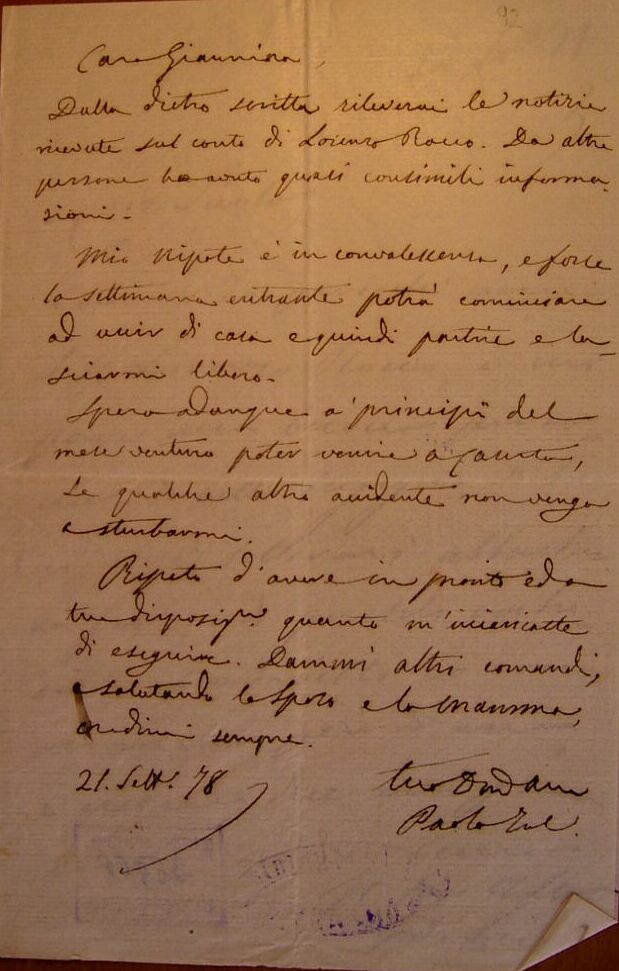 92
Cara Giannina,
Dalla dietro scritta rileverai le notizie
ricevute sul conto di Lorenzo Rocco. Da altre
persone ho avuto quasi consimili informa-
zioni.
Mio Nipote è in convalescenza, e forse
la settimana entrante potrà cominciare
ad uscir di casa e quindi partire e la-
sciarmi libero.
Spero adunque a' principii del
mese venturo poter venire a Caserta,
se qualche altro accidente non venga
a sturbarmi.
Ripeto d'avere in pronto ed a
tua disposizne. quanto m'incaricaste
di eseguire. Dammi altri comandi,
e salutando lo Sposo e la Mamma,
credimi sempre.
21. Sett. 78
tuo
Paolo